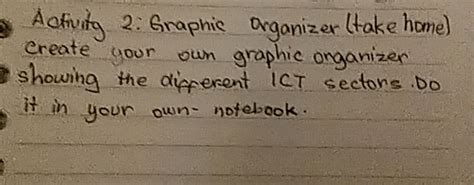 Activity 2: Graphic Organizer (take home)
create your own graphic organizer
showing the different ICT sectors. Do
it in your own- notebook.